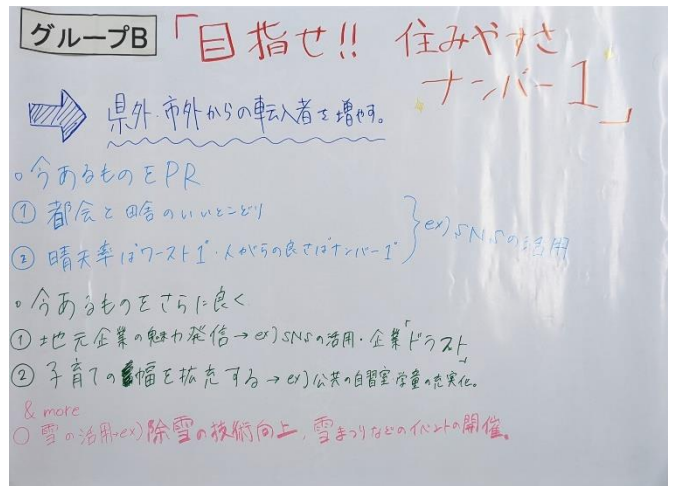 グループB
「目指せ!! 住みやすさ
ナンバー1」
県外・市外からの転入者を増やす。
○今あるものをPR
① 都会と田舎のいいとこどり
② 晴天率は"ワースト1"・人がらの良さは"ナンバー1"
ex) SNSの活用
○今あるものをさらに良く
① 地元企業の魅力発信→ex) SNSの活用・企業「ドラスト」
② 子育ての幅を拡充する→ex) 公共の自習室 学童の充実化。
& more
○ 雪の活用→ex) 除雪の技術向上、雪まつりなどのイベントの開催。